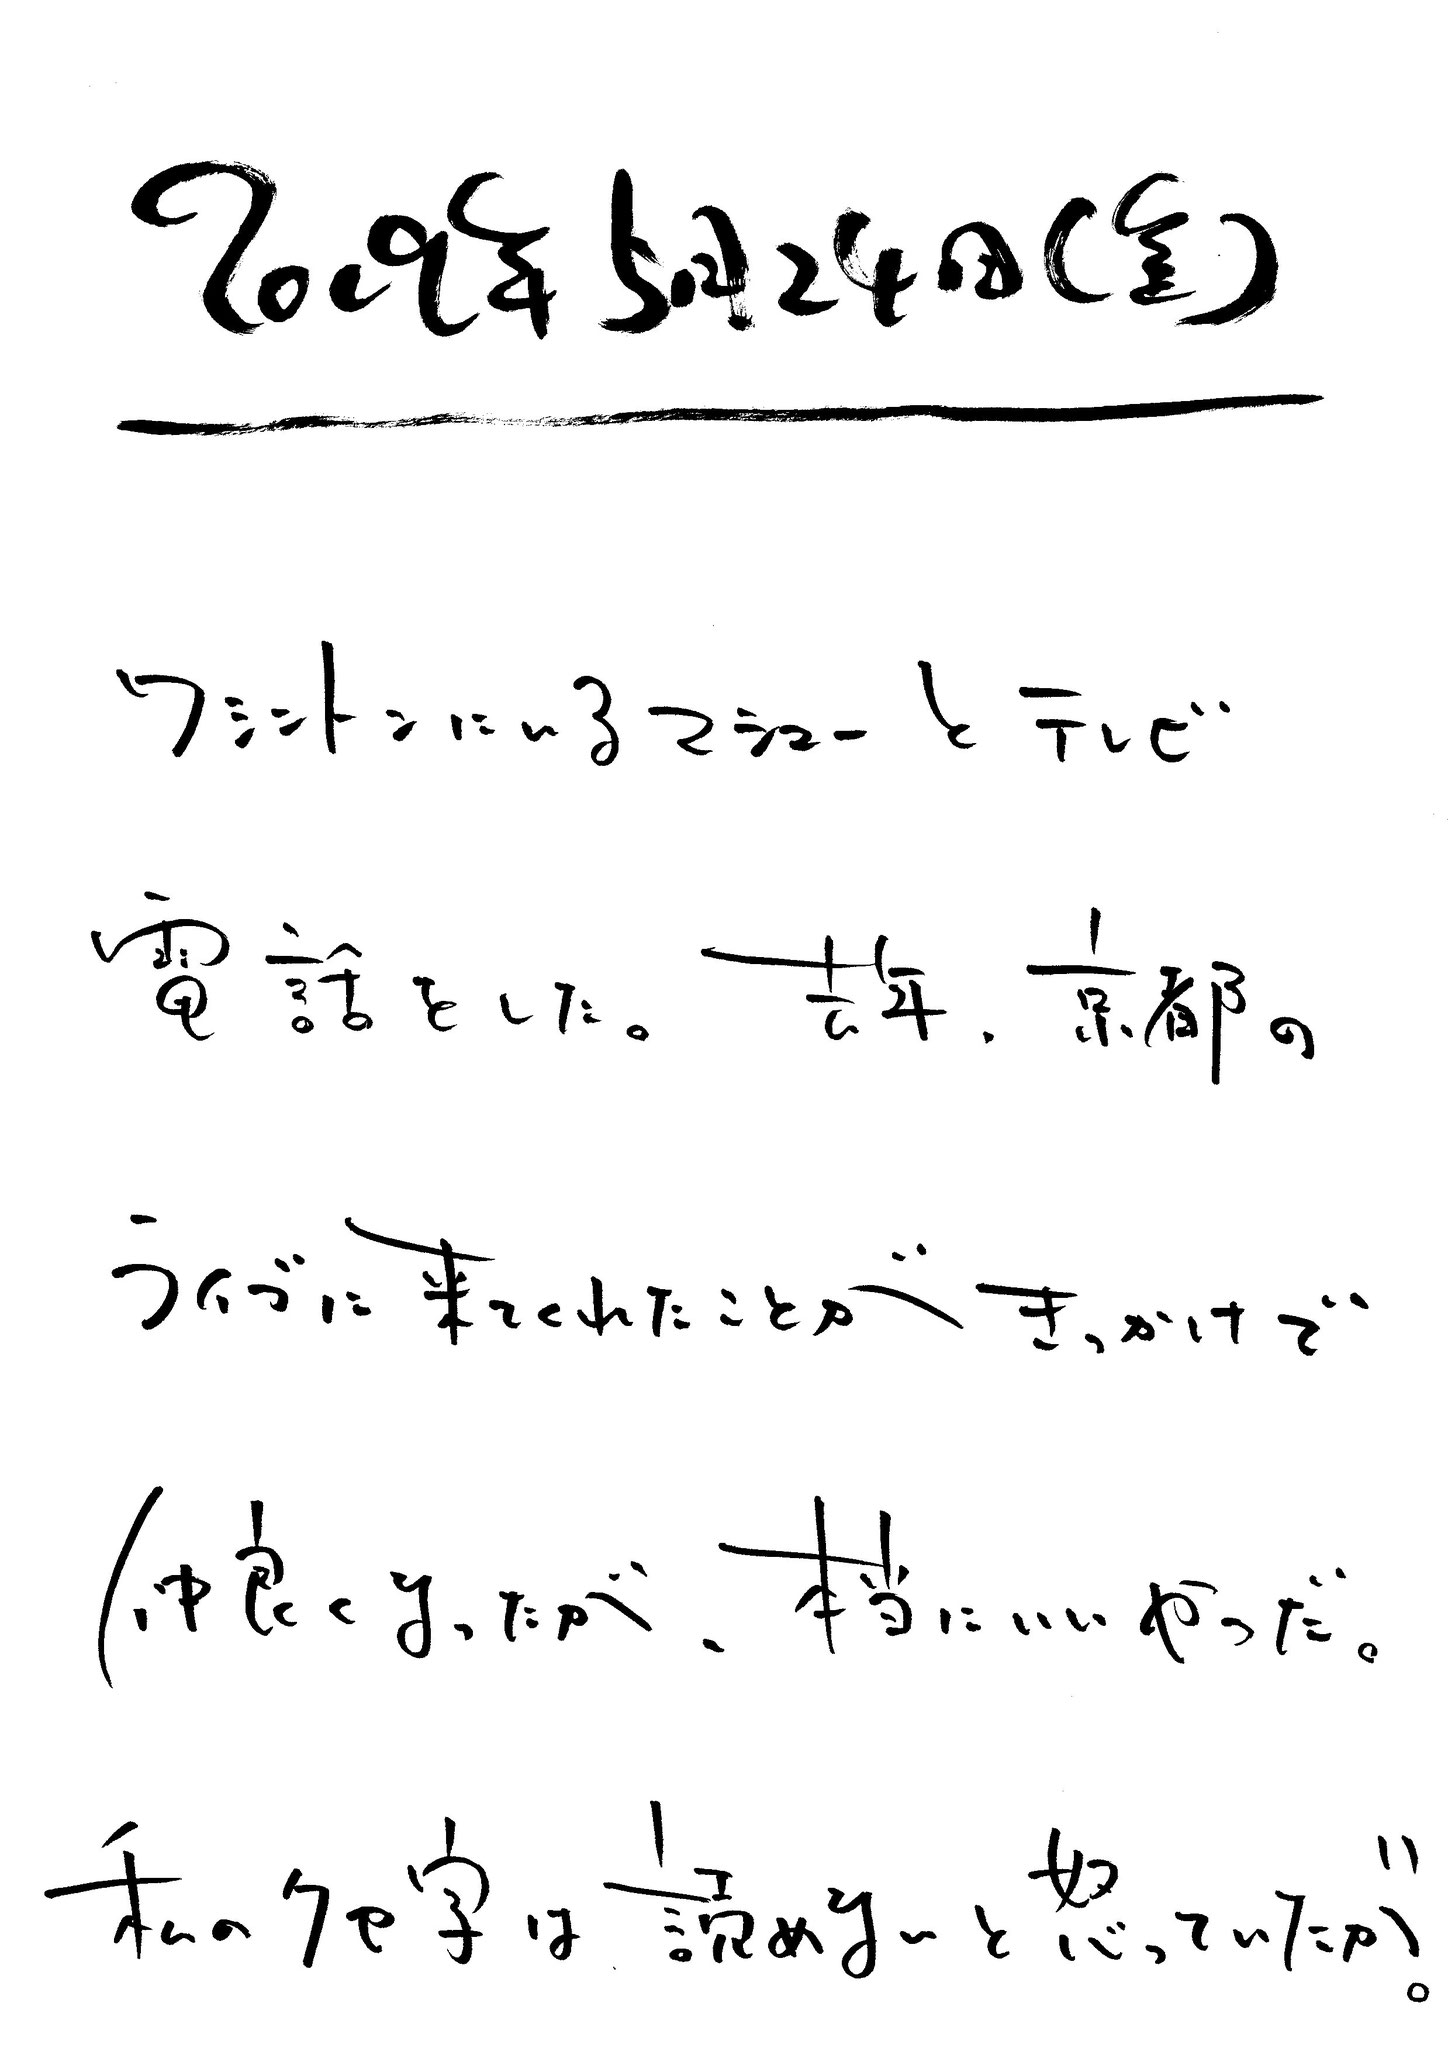 2019年5月24日(金)
ワシントンにいるマシューとテレビ
電話をした。去年、京都の
ライブに来てくれたことがきっかけで
仲良くなったが、本当にいいやつだ。
私のクセ字は読めないと怒っていたが。